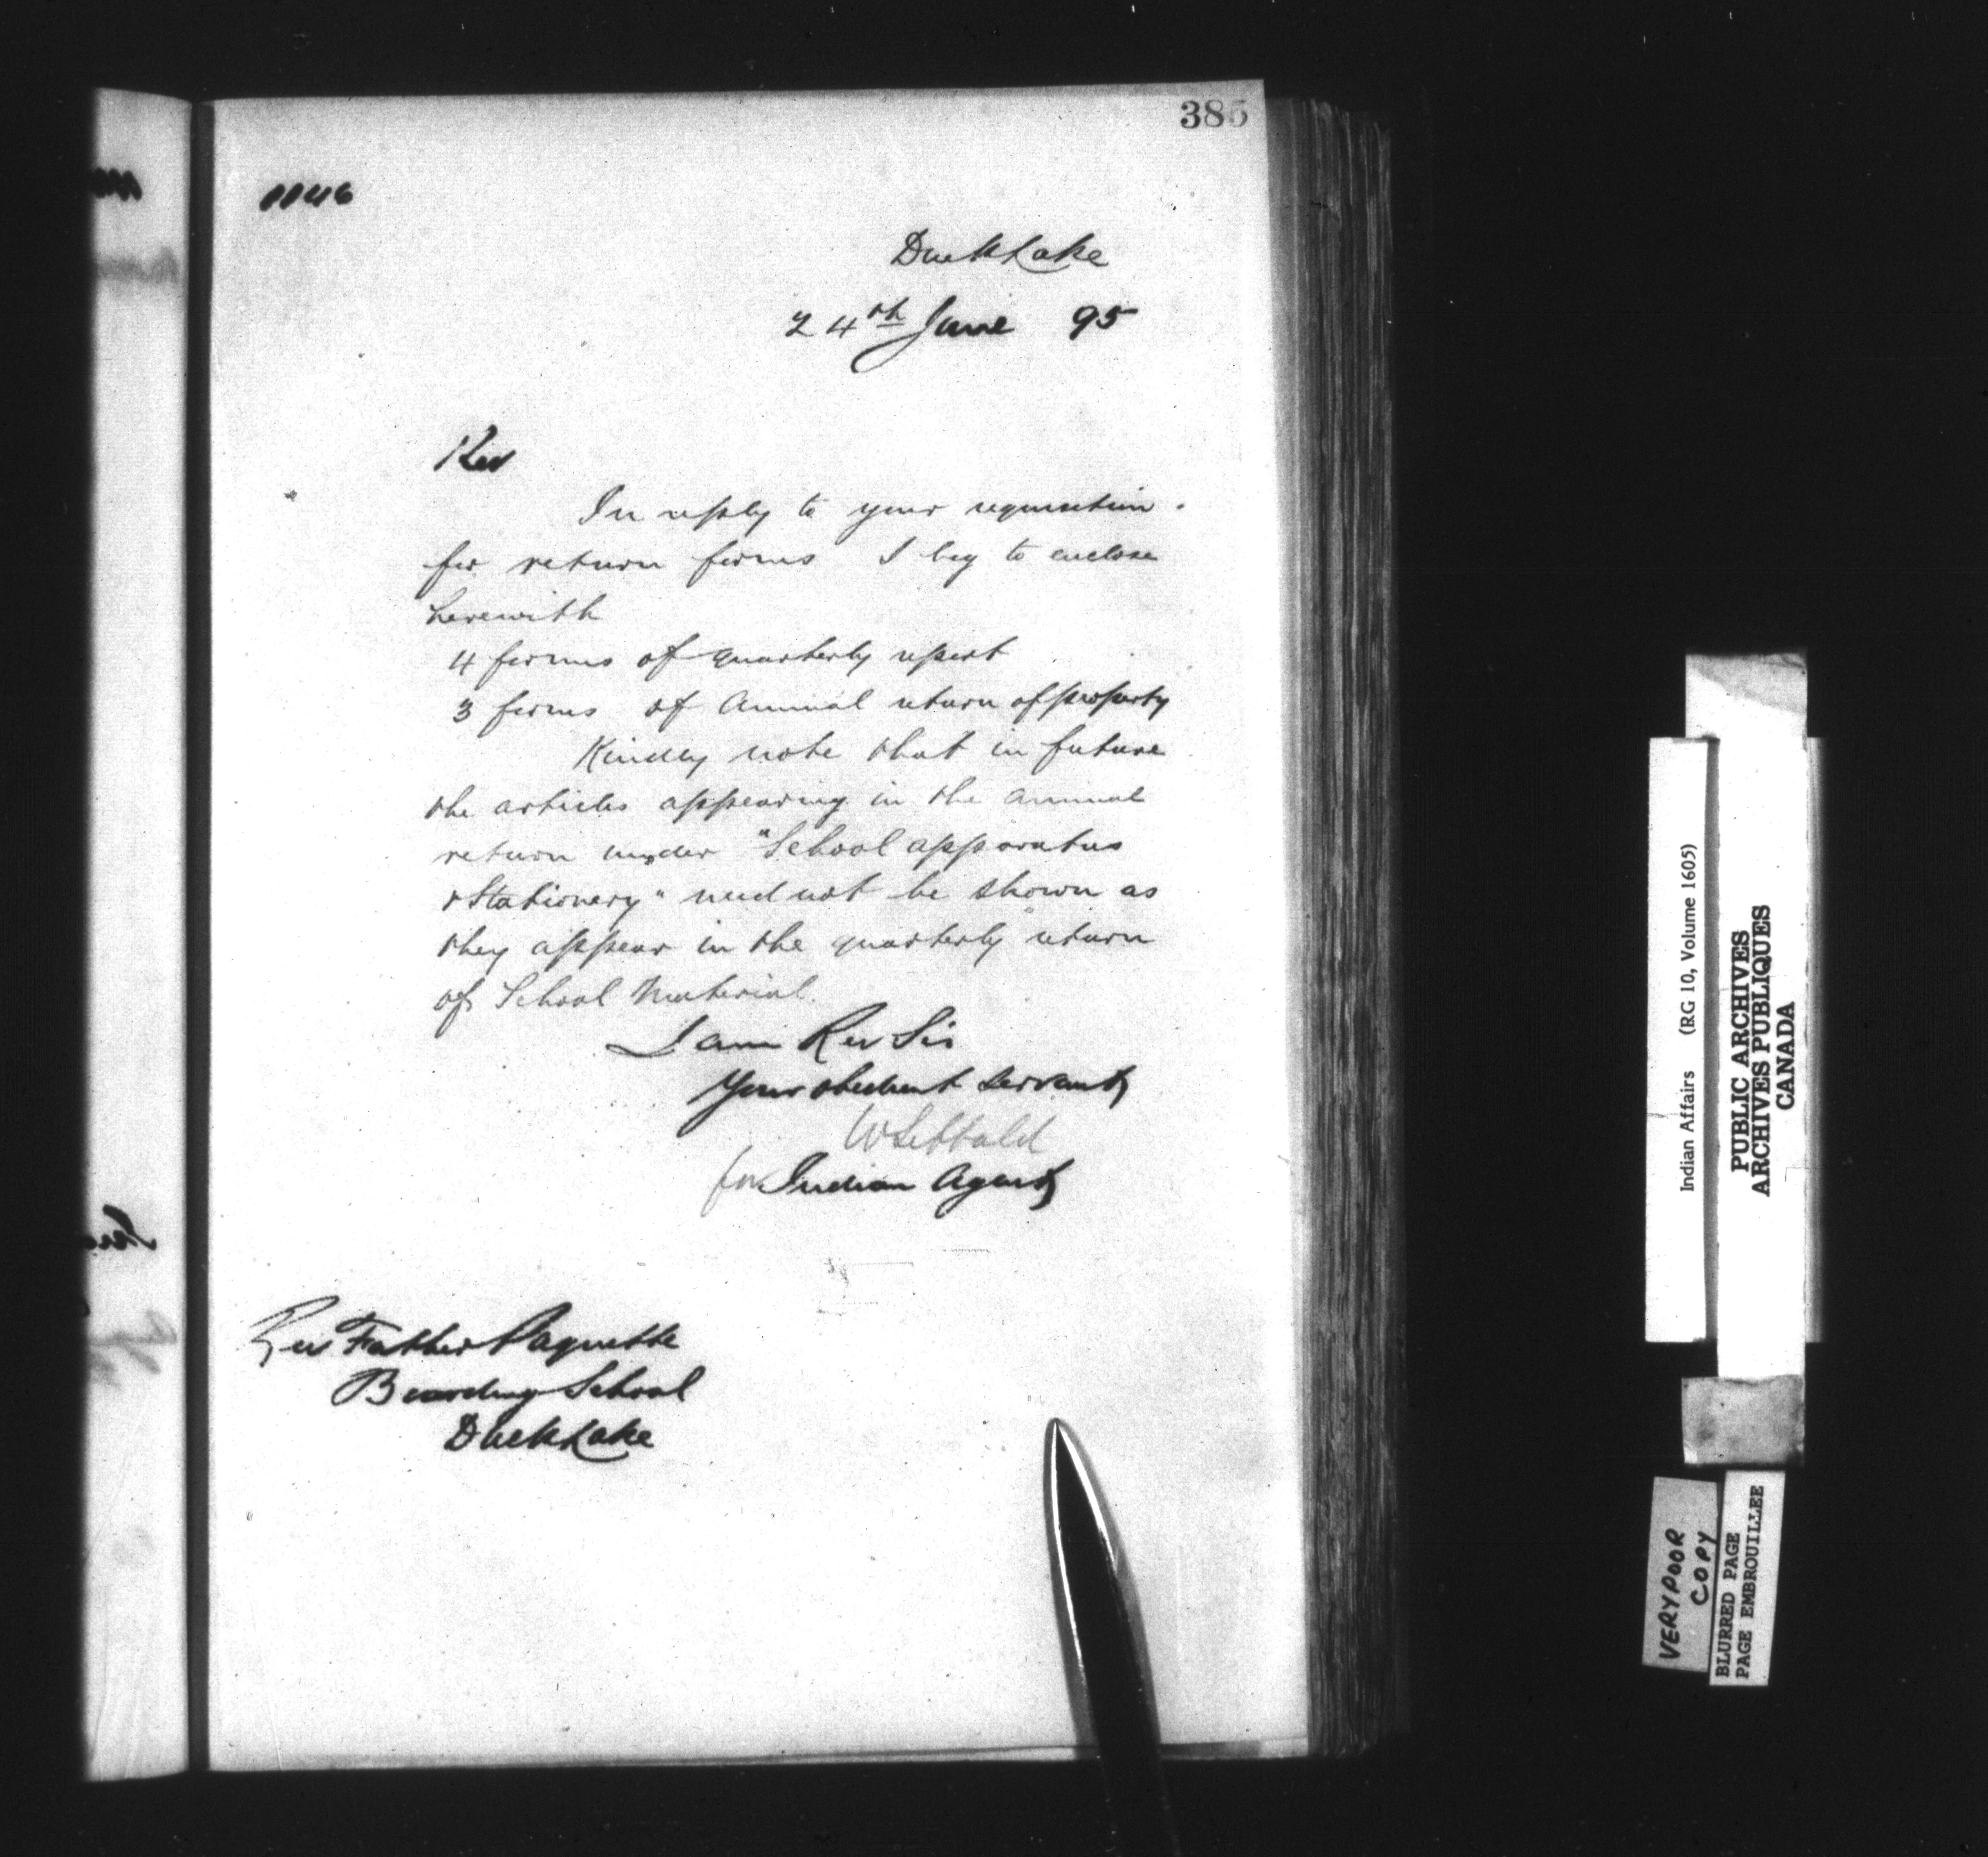 385
1146
Duck Lake
24th June 95
Rev
In reply to your requisition.
for return forms I beg to enclose
herewith
4 forms of quarterly report
3 forms of Annual return of property
Kindly note that in future
the articles appearing in the annual
return under "School apparatus
& Stationery" need not be shown as
they appear in the quarterly return
of School Material.
I am Rev Sir
Your obedient servant
W Sibbald
for Indian Agent
Rev Father Paquette
Boarding School
Duck Lake
Indian Affairs (RG 10, Volume 1605)
PUBLIC ARCHIVES
ARCHIVES PUBLIQUES
CANADA
VERY POOR
COPY
BLURRED PAGE
PAGE EMBROUILLEE